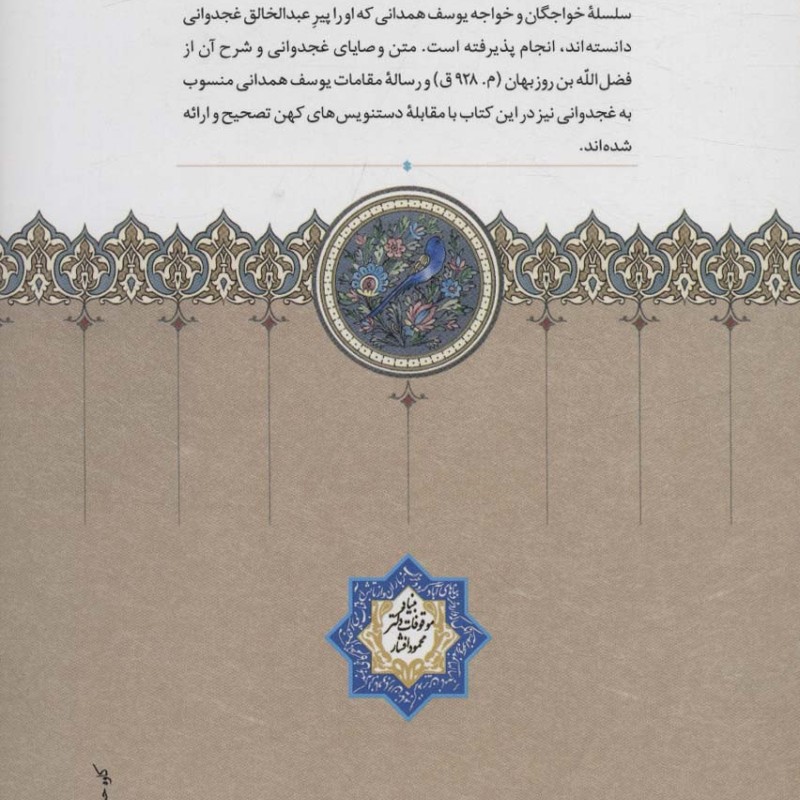 سلسلهٔ خواجگان و خواجه یوسف همدانی که او را پیرِ عبدالخالق غجدوانی
دانسته‌اند، انجام پذیرفته است. متن وصایای غجدوانی و شرح آن از
فضل‌اللّه بن روزبهان (م. ۹۲۸ ق) و رسالهٔ مقامات یوسف همدانی منسوب
به غجدوانی نیز در این کتاب با مقابلهٔ دستنویس‌های کهن تصحیح و ارائه
شده‌اند.
بنیاد
موقوفات دکتر
محمود افشار